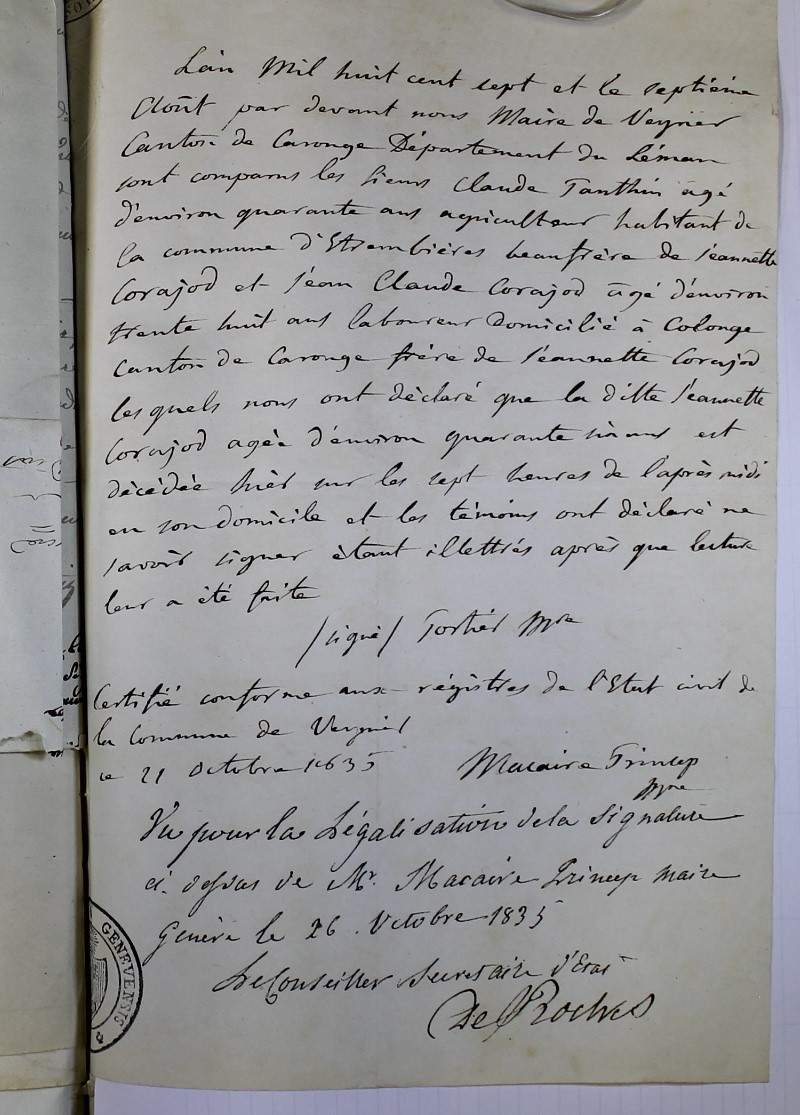 L'an Mil huit cent sept et le septiéme
Août par devant nous Maire de Veyrier
Canton de Carouge Département du Léman
sont comparus les Sieurs Claude Tanthin agé
d'environ quarante ans agriculteur habitant de
la commune d'Etrembières beaufrère de Jéannette
Corajod et Jéan Claude Corajod agé d'environ
trente huit ans laboureur domicilié à Colonge
Canton de Carouge frère de Jéannette Corajod
lesquels nous ont déclaré que la ditte Jéannette
Corajod agée d'environ quarante six ans est
décédée hièr sur les sept heures de l'après midi
en son domicile et les témoins ont déclaré ne
savoir signer étant illettrés après que lecture
leur a été faite
/signé/ Tortiér
Certifié conforme aux régistres de l'Etat civil de
la Commune de Veyrier
ce 21 Octobre 1835
Macaire Prinsep
Vu pour la Légalisation de la Signature
ci-dessus de Mr. Macaire Prinsep Maire
Genève le 26. Octobre 1835
Le Conseiller Secretaire d'Etat
De Roches
GENEVENSIS